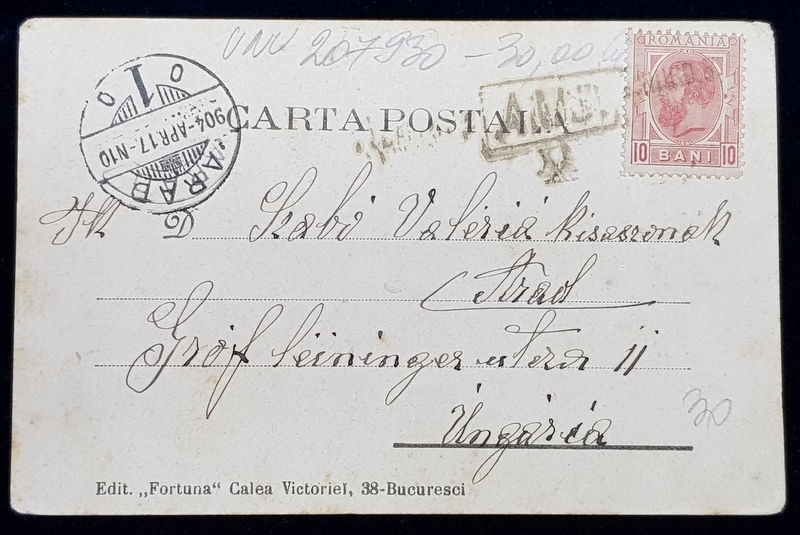 207930 - 30,00
ROMANIA
10 BANI 10
1
904-APR.17-N10
ARAD
CARTA POSTALA
AMB.
Szabó Valéria kisaszonak
Arad
Gróf Leininger utcza 11
Ungária
30
Edit. „Fortuna“ Calea Victoriei, 38-Bucuresci